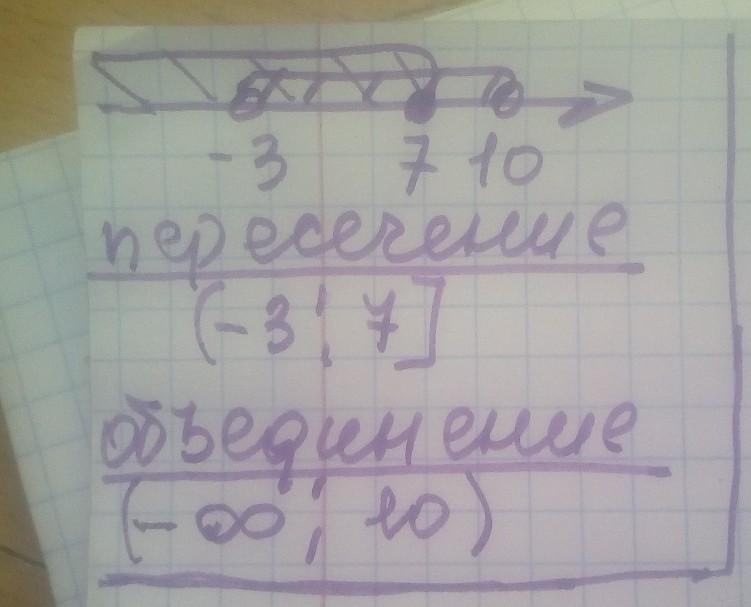 -3 7 10
пересечение
(-3; 7]
объединение
(-∞; 10)